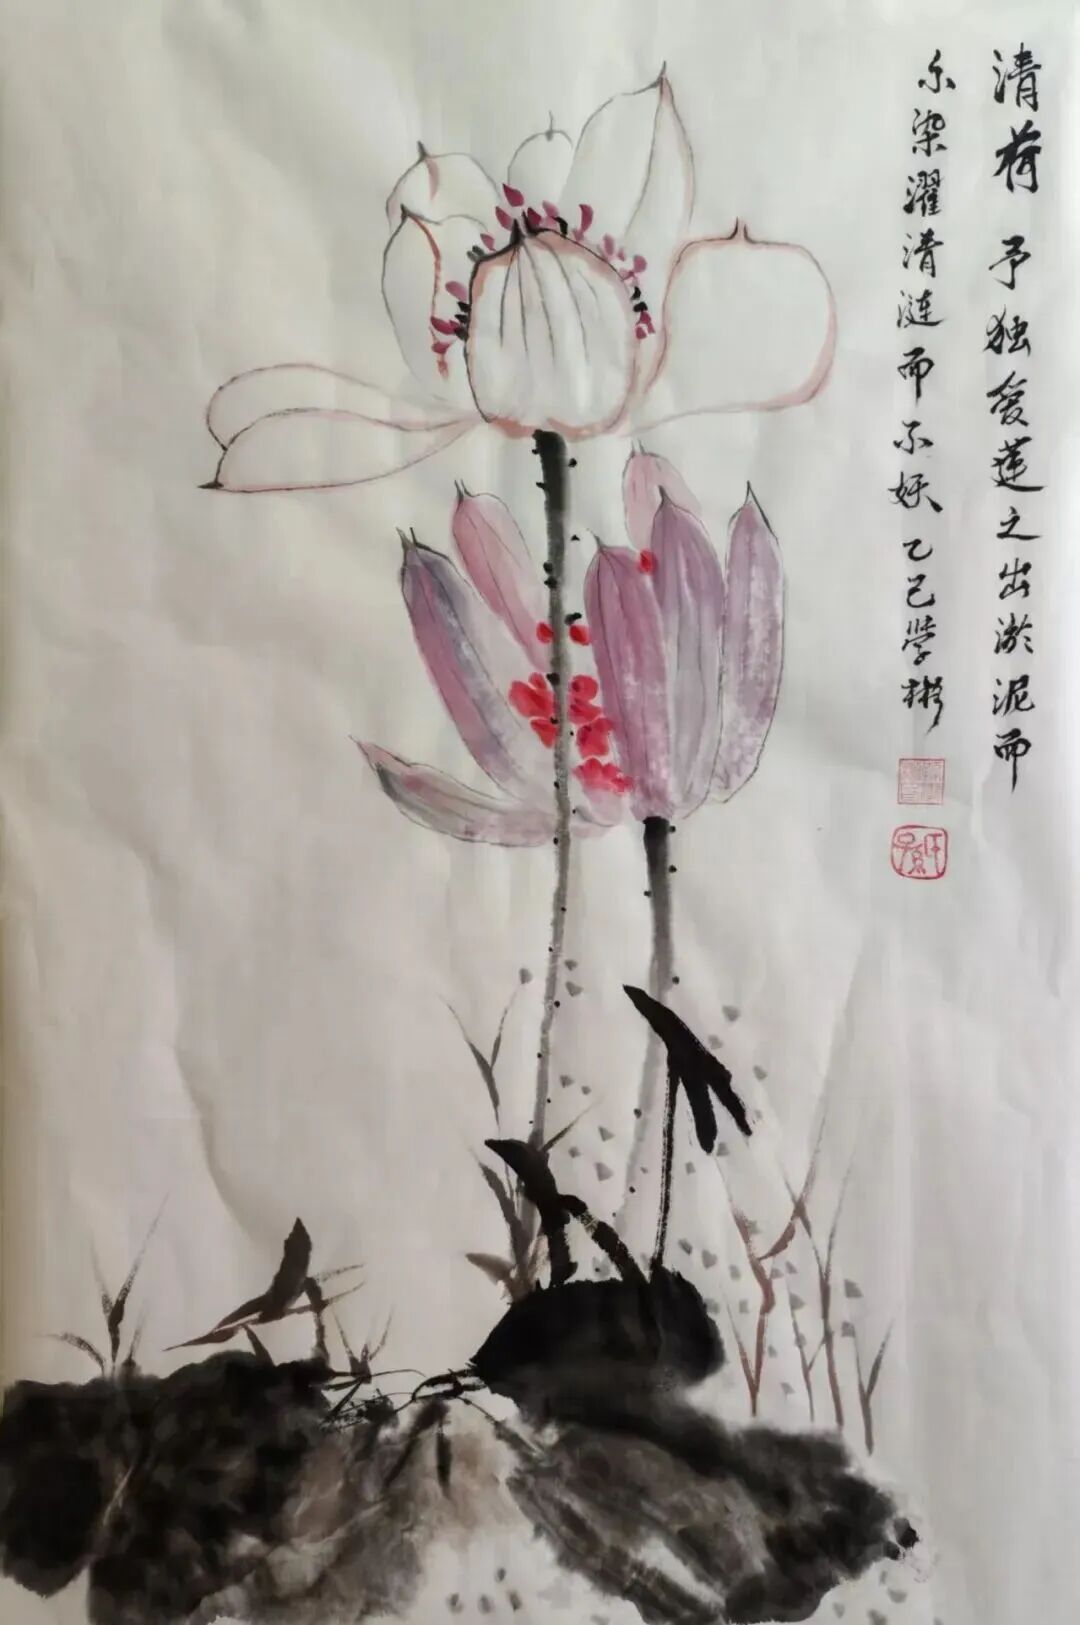 清荷 予独爱莲之出淤泥而
不染濯清涟而不妖 乙巳学彬